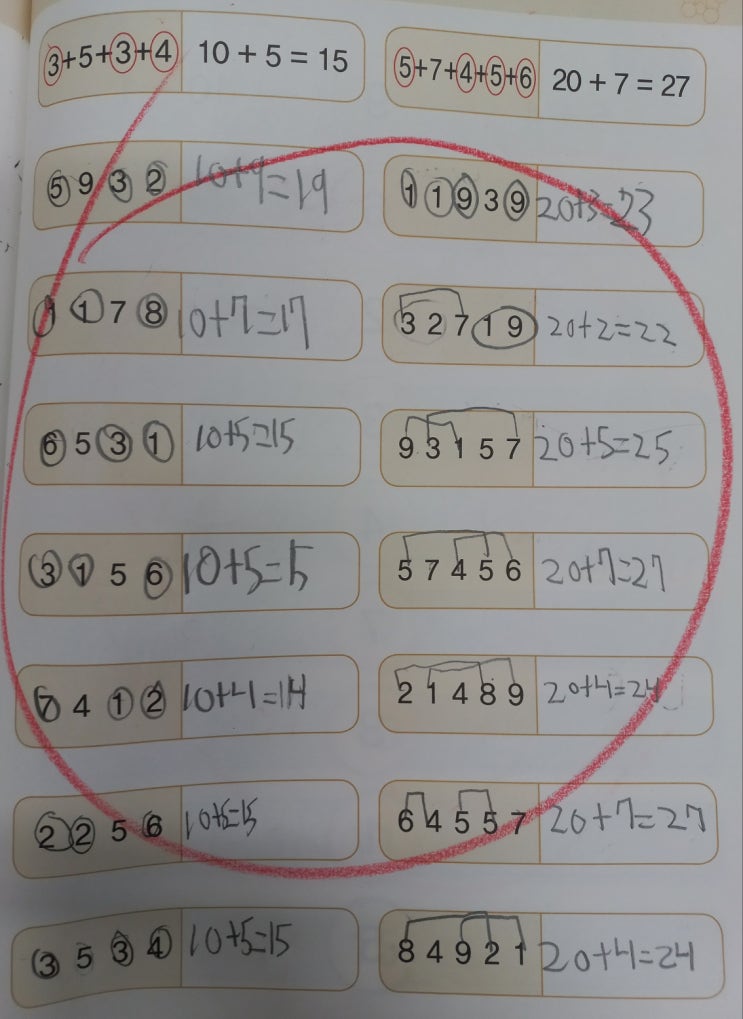 3+5+3+4 10 + 5 = 15 5+7+4+5+6 20 + 7 = 27
5 9 3 2 10+9=19 1 1 9 3 9 20+3=23
1 1 7 8 10+7=17 3 2 7 1 9 20+2=22
6 5 3 1 10+5=15 9 3 1 5 7 20+5=25
3 1 5 6 10+5=15 5 7 4 5 6 20+7=27
7 4 1 2 10+4=14 2 1 4 8 9 20+4=24
2 2 5 6 10+5=15 6 4 5 5 7 20+7=27
3 5 3 4 10+5=15 8 4 9 2 1 20+4=24